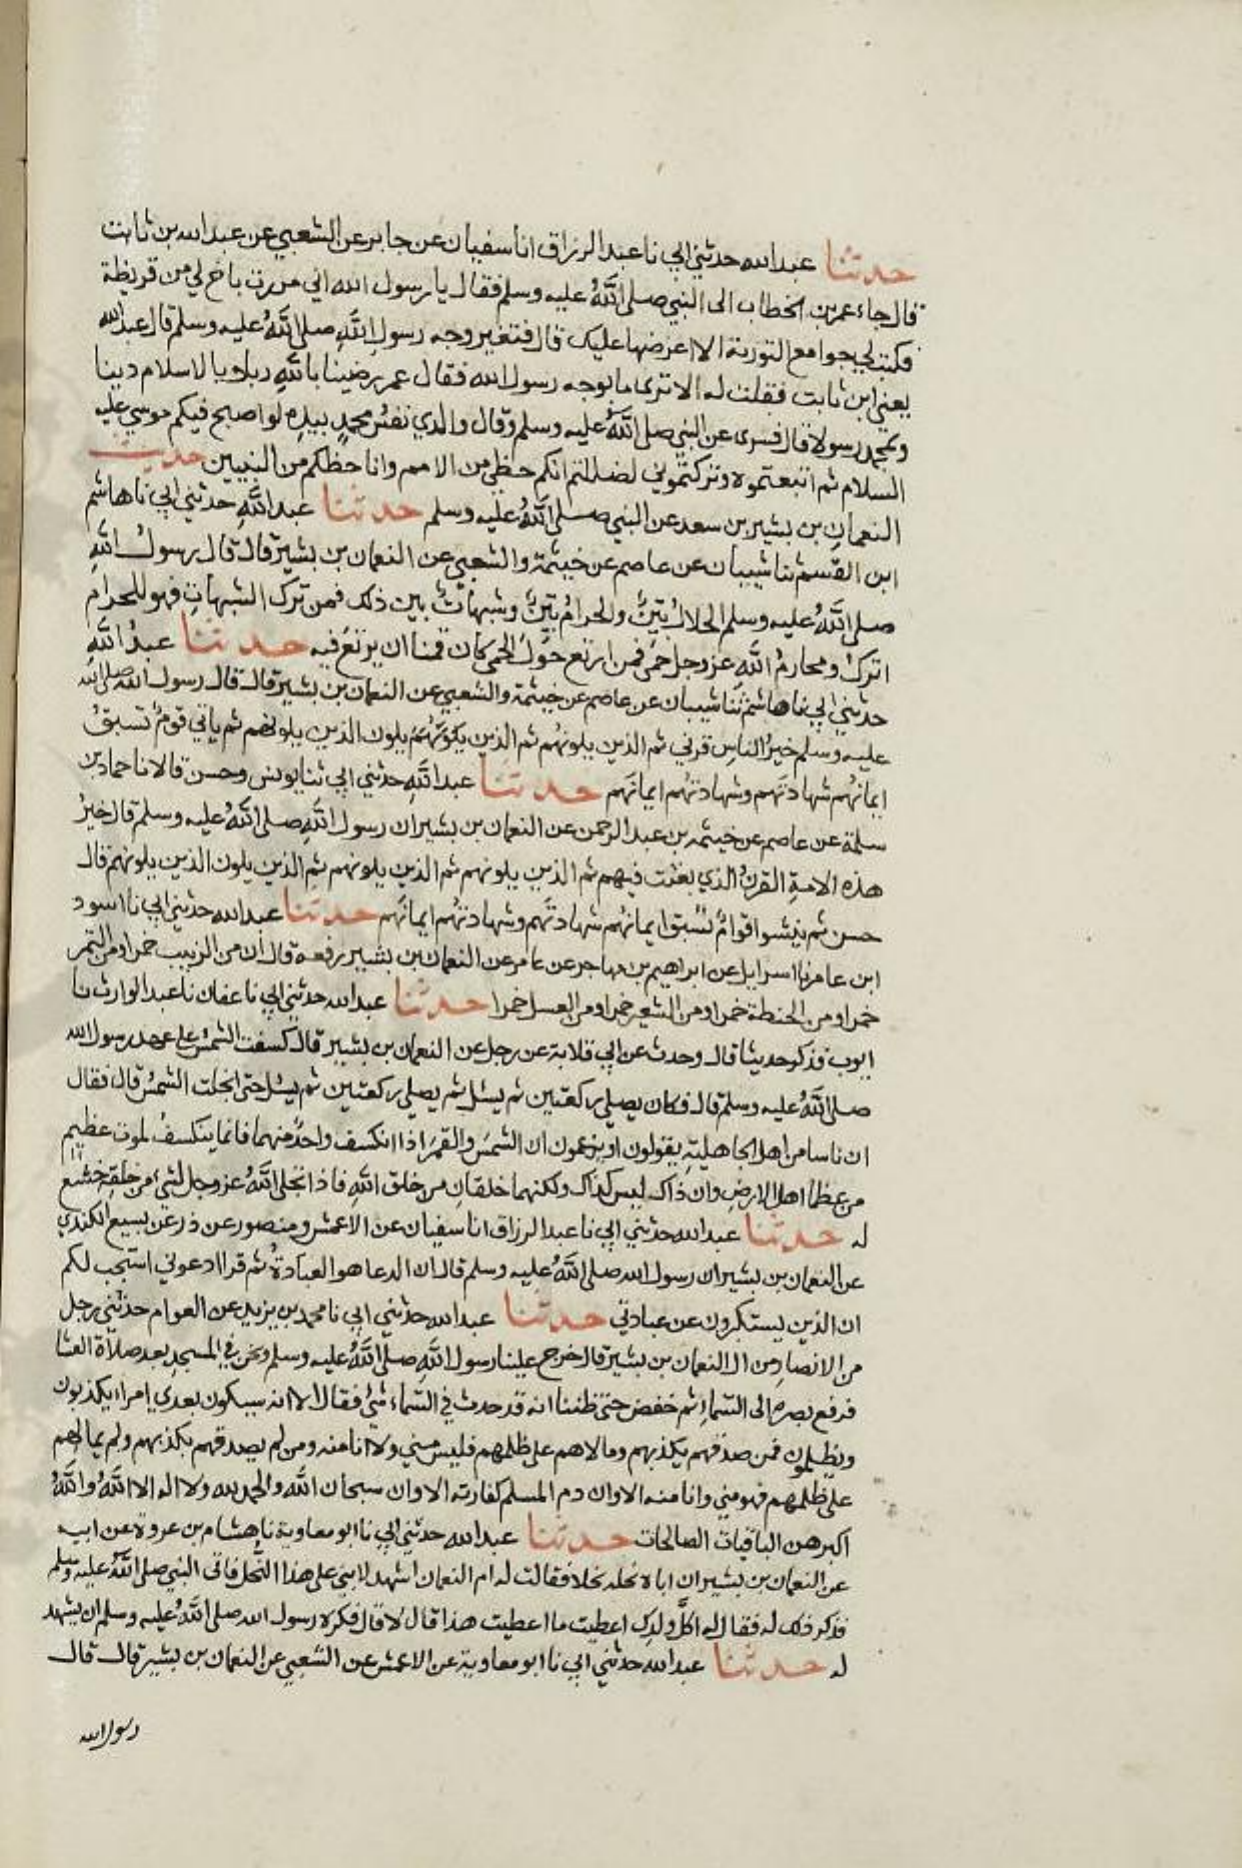 حدثنا عبد الله حدثني ابي نا عبد الرزاق انا سفيان عن جابر عن الشعبي عن عبد الله بن ثابت
قال جاء عمر بن الخطاب الى النبي صلى اللهُ عليه وسلم فقال يا رسول الله اني مررت باخ لي من قريظة
فكتب لي جوامع التورىة الا اعرضها عليك قال فتغير وجه رسولِ اللهِ صلى اللهُ عليه وسلم قال عبد الله
يعني ابن ثابت فقلت له الا ترى ما بوجه رسول الله فقال عمر رضينا باللهِ ربا وبالاسلام دينا
وبمحمد رسولا قال فسرى عن النبي صلى اللهُ عليه وسلم وقال والذي نفسُ محمدٍ بيدِه لو اصبح فيكم موسي عليه
السلام ثم اتبعتموه وتركتموني لضللتم انكم حظي من الامم وانا حظكم من النبيين حديث
النعمانِ بن بشير بن سعد عن النبي صلى اللهُ عليه وسلم حدثنا عبد اللهِ حدثني ابي نا هاشم
ابن القسم ثنا شيبان عن عاصم عن خيثمة والشعبي عن النعمان بن بشير قال قال رسولُ اللهِ
صلى اللهُ عليه وسلم الحلالُ بيّنٌ والحرامُ بيّنٌ وشبهاتٌ بين ذلك فمن ترك الشبهاتِ فهو للحرام
اتركُ ومحارمُ اللهِ عز وجل حمًى فمن ارتع حَوْلَ الحمى كان قمنا ان يرتعَ فيه حدثنا عبدُ اللهِ
حدثني ابي نا هاشم ثنا شيبان عن عاصم عن خيثمة والشعبي عن النعمان بن بشير قال قال رسول الله صلى الله
عليه وسلم خيرُ الناسِ قرني ثم الذين يلونهُم ثم الذين يلونَهُمْ ثم الذين يلونهم ثم ياتي قومٌ تسبقُ
ايمانُهُم شهادتَهم وشهادتهُم ايمانَهم حدثنا عبد اللهِ حدثني ابي ثنا يونس وحسن قالا نا حماد بن
سلمة عن عاصم عن خيثمه بن عبد الرحمن عن النعمان بن بشير ان رسول اللهِ صلى اللهُ عليه وسلم قال خيرُ
هذه الامةِ القرنُ الذي بعثت فيهم ثم الذين يلونهم ثم الذين يلونهم ثم الذين يلون الذين يلونهم قال
حسن ثم ينشو اقوامٌ تسبق ايمانهُم شهادتَهم وشهادتهُم ايمانَهم حدثنا عبد الله حدثني ابي نا اسود
ابن عامر نا اسرايل عن ابراهيم بن مهاجر عن عامر عن النعمان بن بشير رفعه قال ان من الزبيب خمرا ومن التمر
خمرا ومن الحنطة خمرا ومن الشعير خمرا ومن العسل خمرا حدثنا عبد الله حدثني ابي نا عفان نا عبد الوارث نا
ايوب فذكر حديثا قال وحدث عن ابي قلابة عن رجل عن النعمان بن بشير قال كسفت الشمسُ على عهد رسول الله
صلى اللهُ عليه وسلم قال فكان يصلي ركعتين ثم يسئل ثم يصلي ركعتين ثم يسئل حتى انجلت الشمسُ قال فقال
ان ناسا من اهل الجاهلية يقولون او يزعمون ان الشمسَ والقمرَ اذا انكسف واحدٌ منهما فانما ينكسفُ لموت عظيم
من عظما اهل الارضِ وان ذاك ليس كذاك ولكنهما خلقانِ من خلق اللهِ فاذا تجلى اللهُ عز وجل لشيء من خلقه خشع
له حدثنا عبد الله حدثني ابي نا عبد الرزاق انا سفيان عن الاعمش ومنصور عن ذر عن يسيع الكندي
عن النعمان بن بشير ان رسول الله صلى اللهُ عليه وسلم قال ان الدعا هو العبادةُ ثم قرا ادعوني استجب لكم
ان الذين يستكبرون عن عبادتي حدثنا عبد الله حدثني ابي نا محمد بن يزيد عن العوام حدثني رجل
من الانصارِ من ال النعمان بن بشير قال خرج علينا رسول اللهِ صلى اللهُ عليه وسلم ونحن في المسجد بعد صلاة العشا
فرفع بصره الى السماءِ ثم خفض حتى ظننا انه قد حدث في السماء شئ فقال الا انه سيكون بعدي امراء يكذبون
ويظلمون فمن صدقهم بكذبهم ومالاهم على ظلمهم فليس مني ولا انا منه ومن لم يصدقهم بكذبهم ولم يمالهم
على ظلمهم فهو مني وانا منه الا وان دم المسلم كفارته الا وان سبحان الله والحمد لله ولا اله الا اللهُ واللهُ
اكبر هن الباقيات الصالحات حدثنا عبد الله حدثني ابي نا ابو معاوية نا هشام بن عروة عن ابيه
عن النعمان بن بشير ان اباه نحله نحلا فقالت له ام النعمان اشهد لابني على هذا النُّحل فاتى النبي صلى اللهُ عليه وسلم
فذكر ذلك له فقال له اكلَّ ولدِك اعطيت ما اعطيت هذا قال لا قال فكره رسول الله صلى اللهُ عليه وسلم ان يشهد
له حدثنا عبد الله حدثني ابي نا ابو معاوية عن الاعمش عن الشعبي عن النعمان بن بشير قال قال
رسول الله